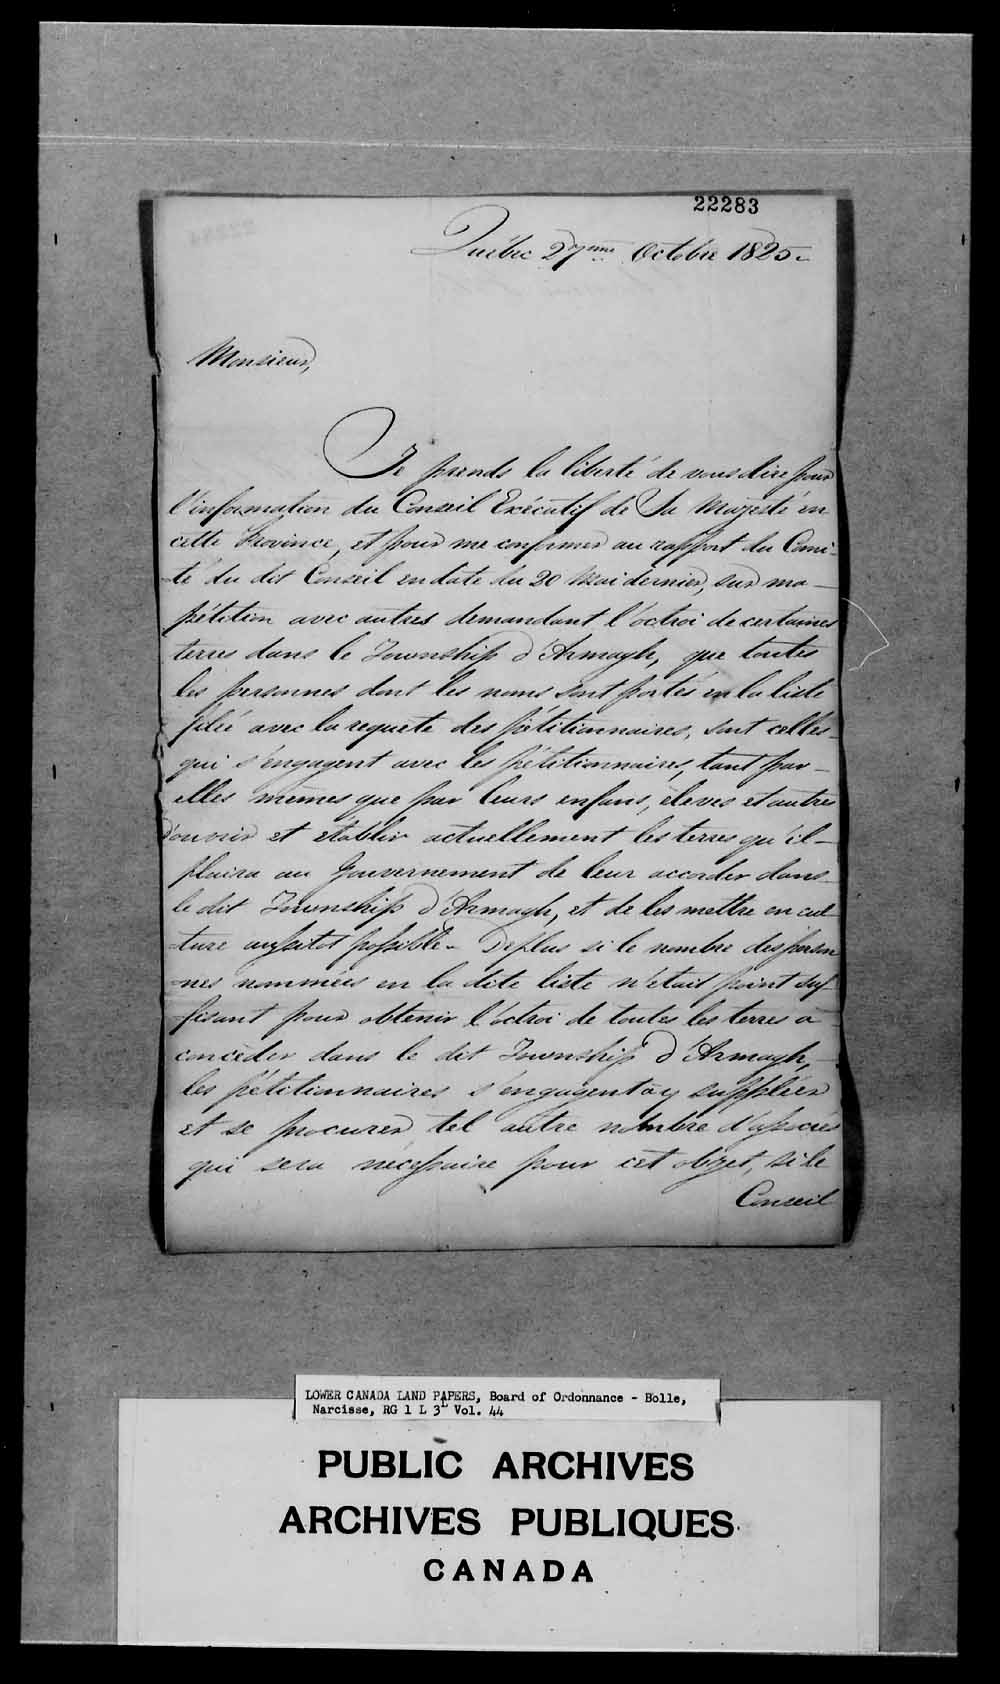 22283
Québec 27me. Octobre 1825.
Monsieur,
Je prends la liberté de vous dire pour
l'information du Conseil Exécutif de Sa Majesté en
cette Province, et pour me conformer au rapport du Comi-
-té du dit Conseil en date du 20 Mai dernier, sur ma
pétition avec autres demandant l'octroi de certaines
terres dans le Township d'Armagh, que toutes
les personnes dont les noms sont portés en la liste
filée avec la requete des pétitionnaires, sont celles
qui s'engagent avec les pétitionnaires, tant par
elles mêmes que par leurs enfans, éleves et autres
d'ouvrir et établir actuellement les terres qu'il
plaira au Gouvernement de leur accorder dans
le dit Township d'Armagh, et de les mettre en cul
-ture aussitot possible. De plus si le nombre des person
-nes nommées en la dite liste n'était point suf-
-fisant pour obtenir l'octroi de toutes les terres a
concéder dans le dit Township d'Armagh,
les pétitionnaires s'engagent a y suppléer
et se procurer tel autre nombre d'associés
qui sera nécessaire pour cet objet, si le
Conseil
LOWER CANADA LAND PAPERS, Board of Ordonnance - Bolle,
Narcisse, RG 1 L 3L Vol. 44
PUBLIC ARCHIVES
ARCHIVES PUBLIQUES
CANADA